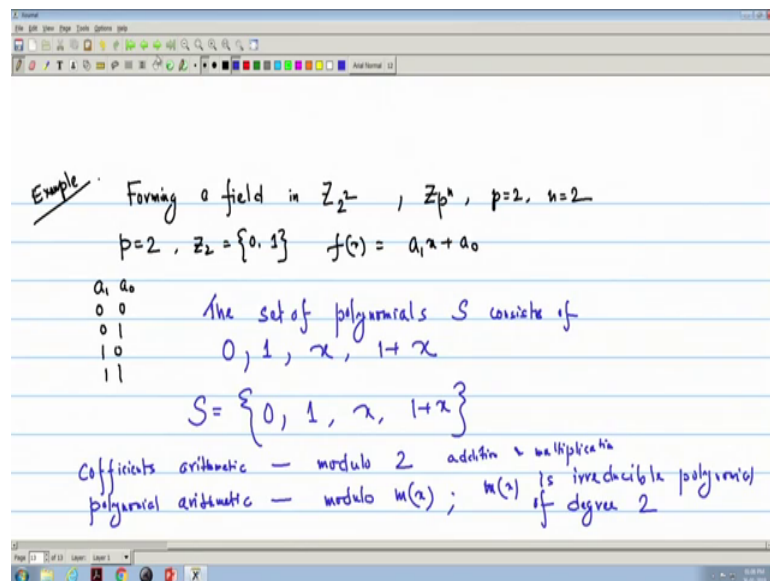 Journal
File Edit View Page Tools Options Help
Arial Normal 12
Example. Forming a field in Z_2^2 , Z_p^n, p=2, n=2
p=2 , Z_2 = {0, 1} f(x) = a_1 x + a_0
a_1 a_0
0 0
0 1
1 0
1 1
The set of polynomials S consists of
0, 1, x, 1+x
S = {0, 1, x, 1+x}
Cofficients arithmetic — modulo 2 addition & multiplication
polynomial arithmetic — modulo m(x) ; m(x) is irreducible polynomial of degree 2
Page 13 of 13 Layer: Layer 1